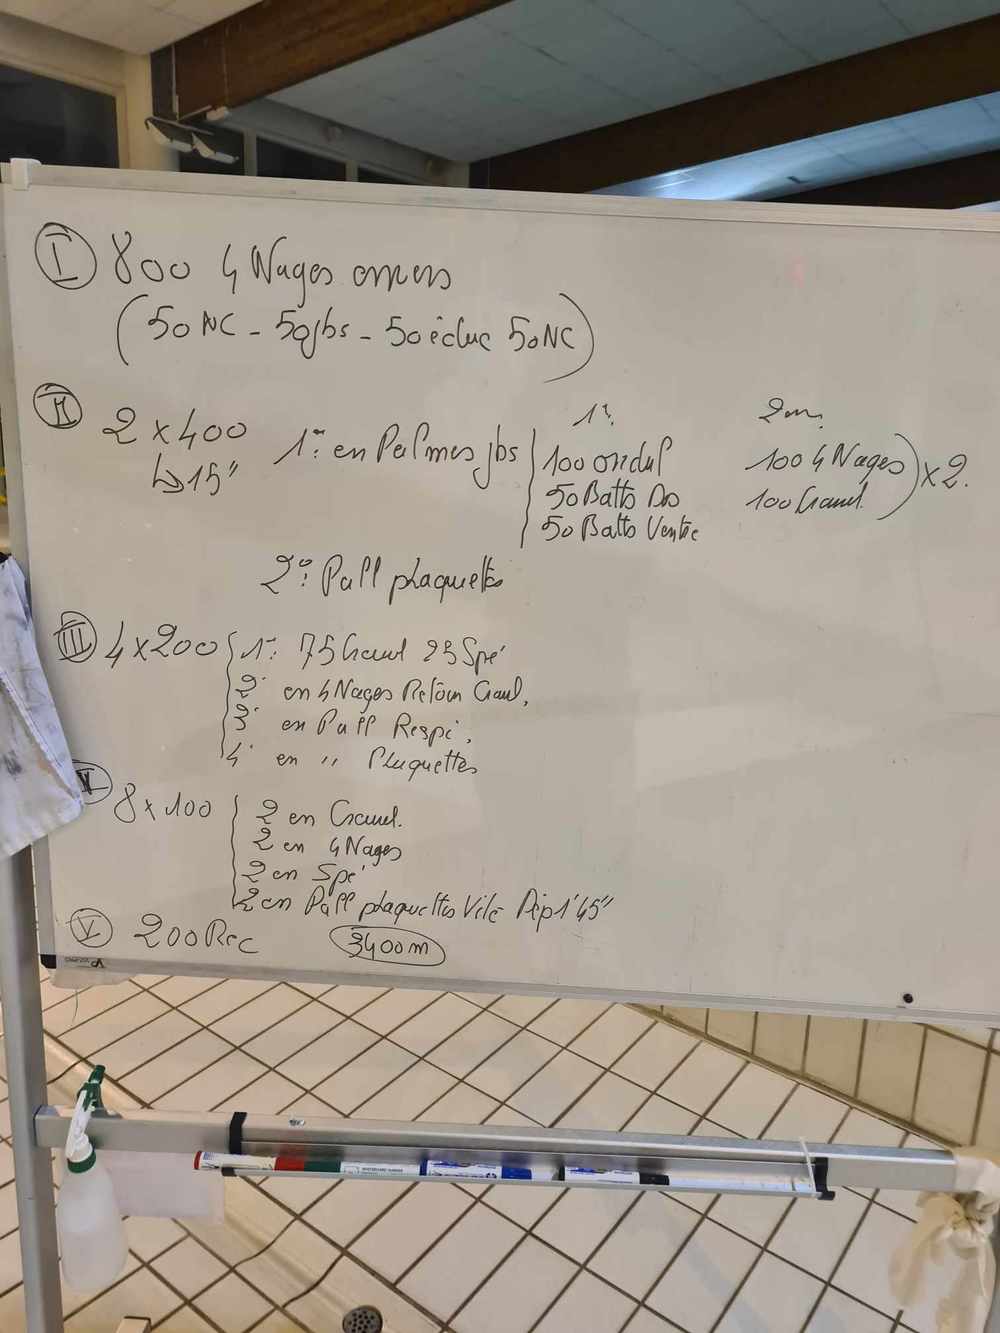 I 800 4 Nages
(50 NC - 50 jbs - 50 éduc 50 NC)
II 2 x 400 1° en Palmes jbs 1° 2em
↳ 15" 100 ondul 100 4 Nages
50 Batts Dos 100 Crawl x 2.
50 Batts Ventre
2° Pull plaquettes
III 4 x 200 1° 75 Crawl 25 Spé
2° en 4 Nages Retour Crawl,
3° en Pull Respi,
4° en " Plaquettes
8 x 100 2 en Crawl.
2 en 4 Nages
2 en Spé
2 en Pull plaquettes Vite Dép 1'45"
V 200 Rec 3400m